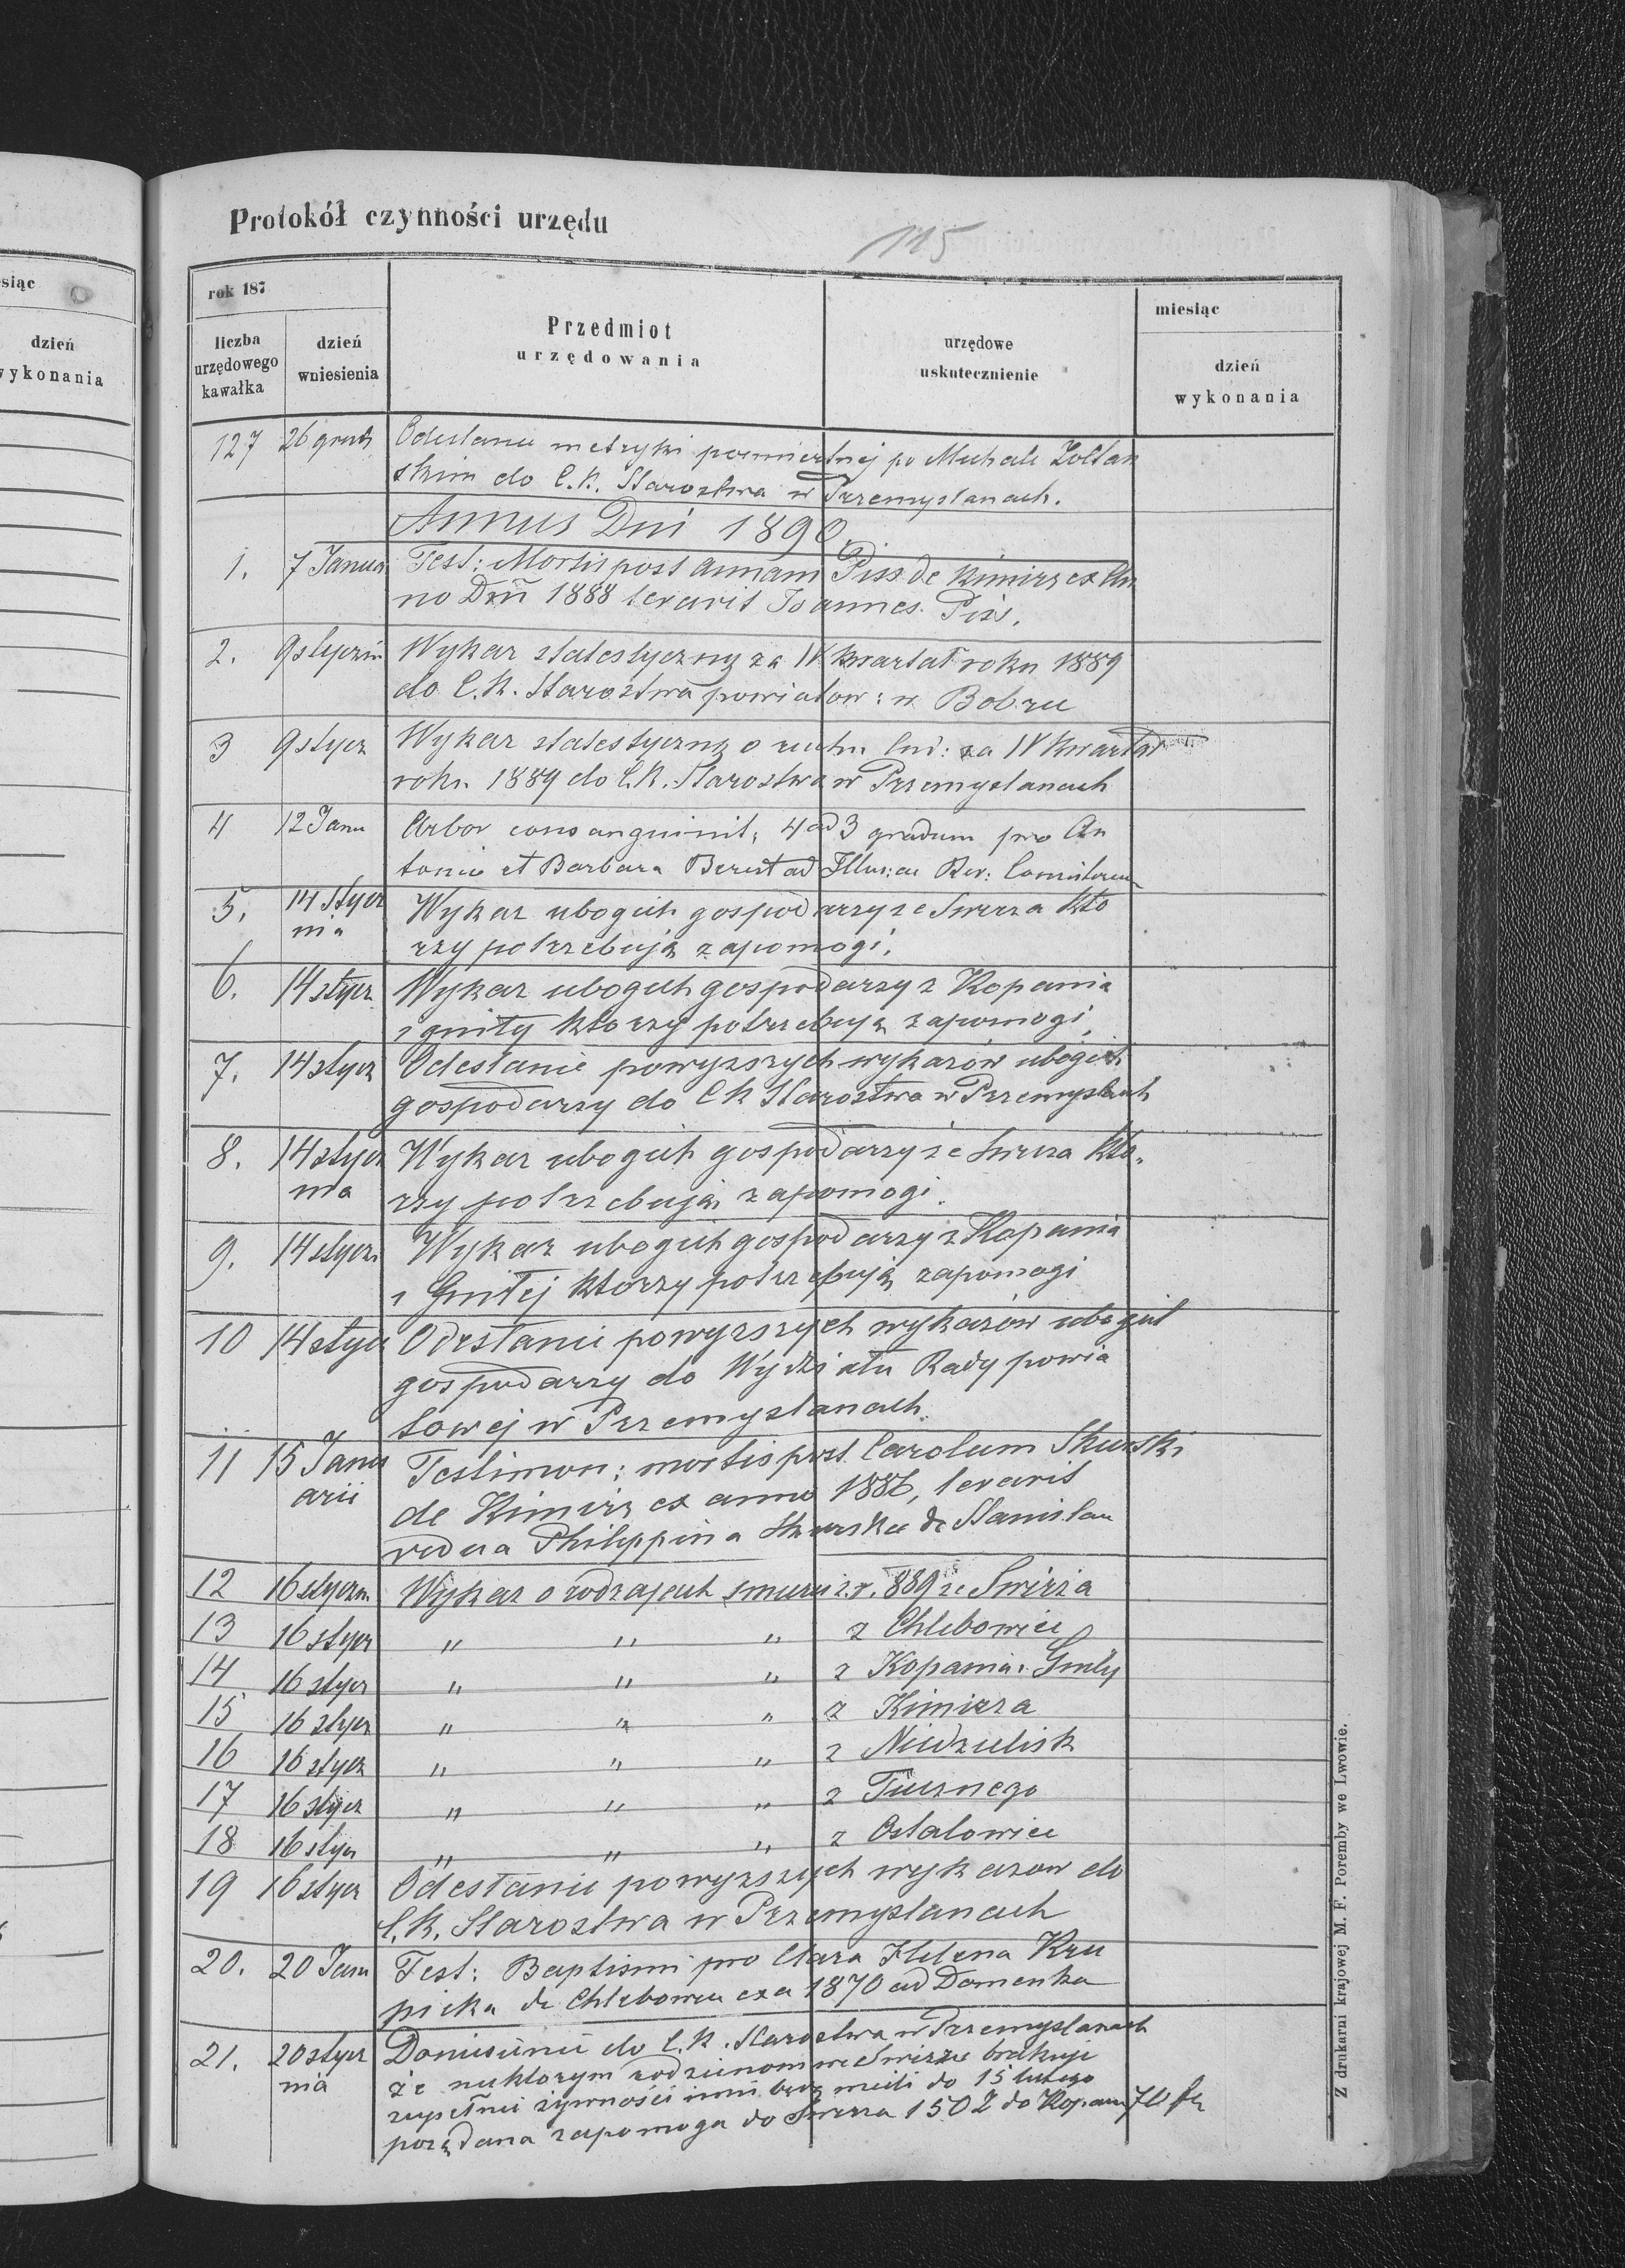 siąc
dzień
wykonania
Protokół czynności urzędu
115
rok 187
liczba
urzędowego
kawałka
dzień
wniesienia
Przedmiot
urzędowania
urzędowe
uskutecznienie
miesiąc
dzień
wykonania
127 26 grud Odesłanie metryki pośmiertnej po Michale Zołtań
skim do C.K. Starostwa w Przemyslanach.
Annus Dni 1890.
1. 7 Janua Test: Mortis post Annam Piss de Kimirz ex An
no Dni 1888 levavit Joannes Piss.
2. 9 styczni Wykaz statestyczny za IV kwartał roku 1889
do C.K. Starostwa powiatow: w Bobrze
3 9 stycz Wykaz statestyczny o ruchu lud: za IV kwartał
roku 1889 do C.K. Starostwa w Przemyslanach
4 12 Janu Arbor consanguinit: 4 ad 3 gradum pro An
tonio et Barbara Berest ad Illus: ac Rev: Consistorium
5. 14 stycz Wykaz ubogich gospodarzy ze Swirza kto
nia
rzy potrzebują zapomogi.
6. 14 stycz Wykaz ubogich gospodarzy z Kopania
i gniły ktorzy potrzebują zapomogi,
7. 14 stycz Odesłanie powyzszych wykazów ubogich
gospodarzy do C K Starostwa w Przemyslanach
8. 14 stycz Wykaz ubogich gospodarzy ze Swirza kto,
nia rzy potrzebują zapomogi.
9. 14 stycz Wykaz ubogich gospodarzy z Kopania
i Gniłej ktorzy potrzebują zapomogi
10 14 stycz Odesłanie powyzszych wykazów ubogich
gospodarzy do Wydziału Rady powia
towej w Przemyslanach.
11 15 Janu Testimon: mortis post Carolum Skurski
arii de Kimirz ex anno 1886, levavit
vidua Philippina Skurska de Stanislau
12 16 styczn Wykaz o rodzajach smierci z r. 889 ze Swirża
13 16 stycz " " " z Chlebowic
14 16 stycz " " " z Kopania i Gniły
15 16 stycz " " " z Kimirza
16 16 stycz " " " z Niedzielisk
17 16 stycz " " " z Tucznego
18 16 stycz " " " z Ostalowice
19 16 stycz Odesłanie powyzszych wykazow do
C.K. Starostwa w Przemyslanach
20. 20 Janu Test: Baptismi pro Clara Helena Kru
picka de Chlebowice ex a 1870 ad Domenka
21. 20 stycz Doniesienie do C.K. Starostwa w Przemyslanach
nia że niektorym rodzinom we Swirzu brakuje
zupełnie żywności inni będą mieli do 15 lutego
porządana zapomoga do Swirza 150 Z do Kopan
Z drukarni krajowej M. F. Poremby we Lwowie.